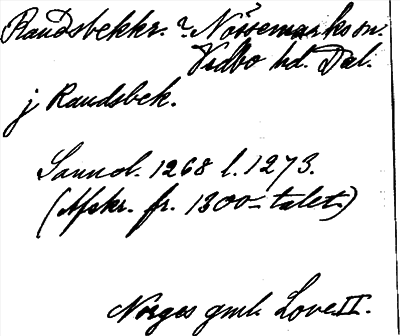 Raudsbekkr. ? Nössemarks sn.
Vedbo hd. Dal.
j Raudsbek.
Sannol. 1268 l. 1273.
(Afskr. fr. 1300-talet)
Norges gml. Love II.